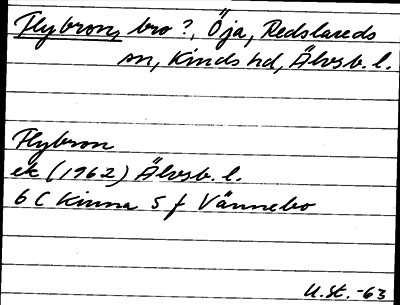 Flybron, bro ?, Öja, Redslareds
sn, Kinds hd, Älvsb. l.
Flybron
ek (1962) Älvsb. l.
6 C Kinna 5 f Vännebo
U.St. -63